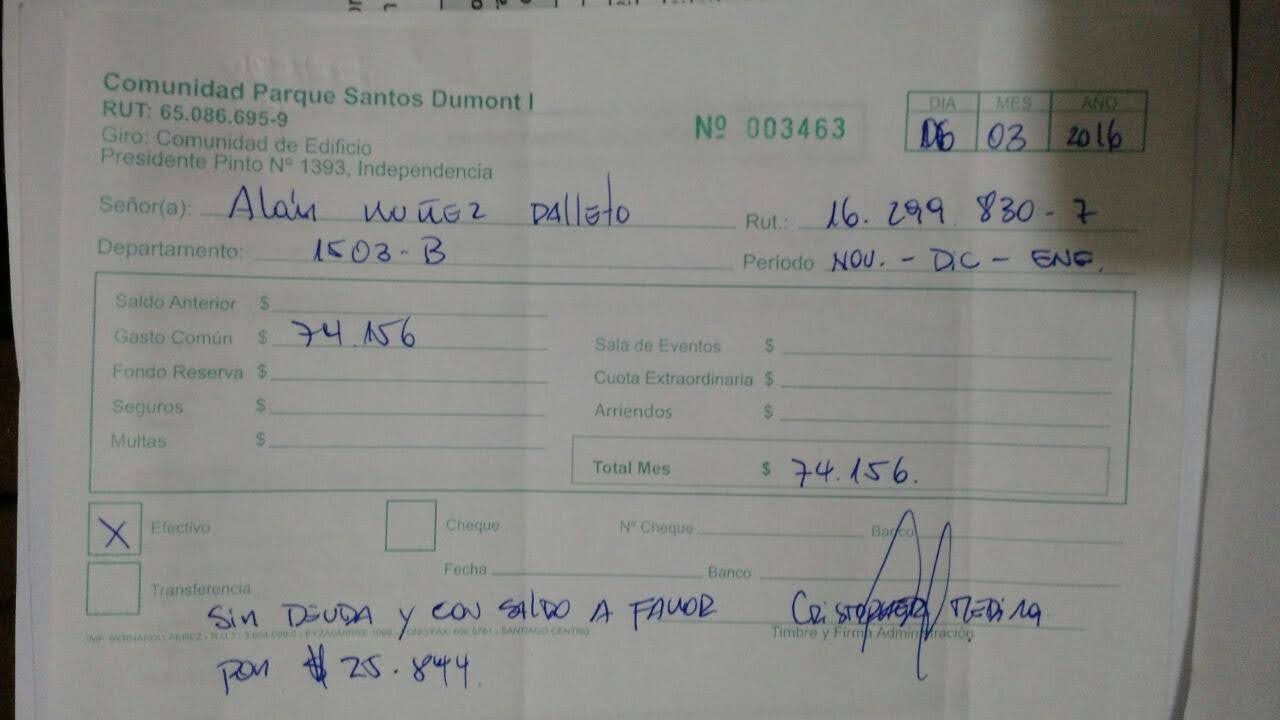 Comunidad Parque Santos Dumont I
RUT: 65.086.695-9
Giro: Comunidad de Edificio
Presidente Pinto Nº 1393, Independencia
Nº 003463
DIA MES AÑO
06 03 2016
Señor(a): Alan Nuñez Dalleto Rut.: 16.299.830-7
Departamento: 1503-B Periodo NOV. - DIC - ENE.
Saldo Anterior $
Gasto Común $ 74.156
Fondo Reserva $
Seguros $
Multas $
Sala de Eventos $
Cuota Extraordinaria $
Arriendos $
Total Mes $ 74.156.
X Efectivo Cheque Nº Cheque Banco
Transferencia Fecha Banco
Sin DEUDA y con SALDO A FAVOR
por $ 25.844.
Cristopher Medina
Timbre y Firma Administración